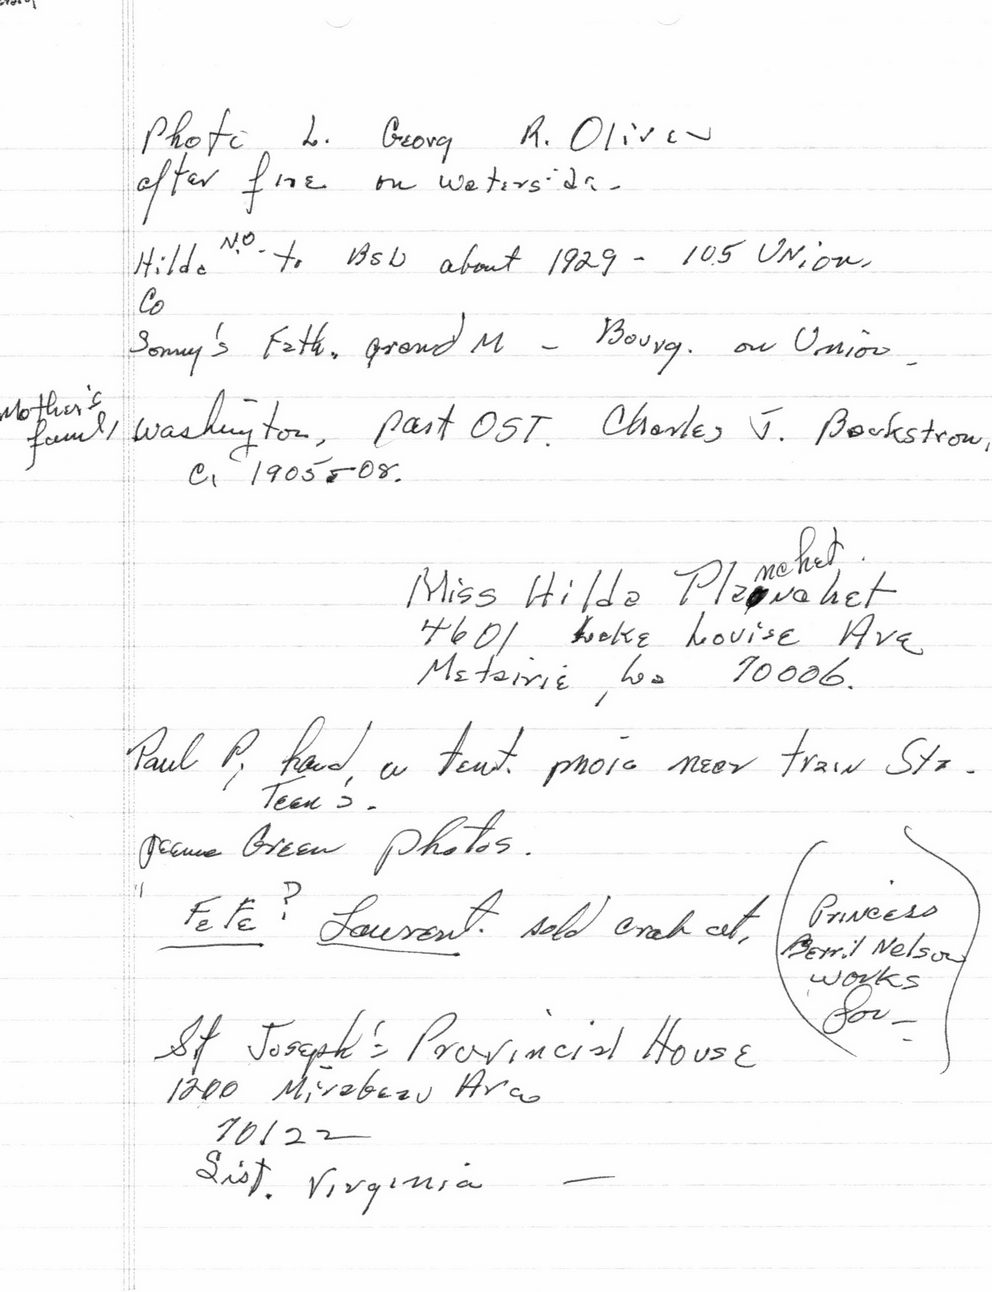 Photo L. Georg R. Oliver
after fire on waterside.
Hilda N.O. to BSL about 1929 - 105 Union.
Co
Sonny's Fath. grand M - Bourg. on Union
Mother's family
Washington, part OST. Charles J. Backstrom,
C. 1905-08.
Miss Hilda Planchet
nchet.
4601 Lake Louise Ave
Metairie, La 70006.
Paul P, had a tent. near train Sta.
Teen's.
Green photos.
" FeFe? Laurent. sold crab at,
(Princess
Berril Nelson
works
for -)
St Joseph's Provincial House
1200 Mirabeau Ave
70122
Sist. Virginia —